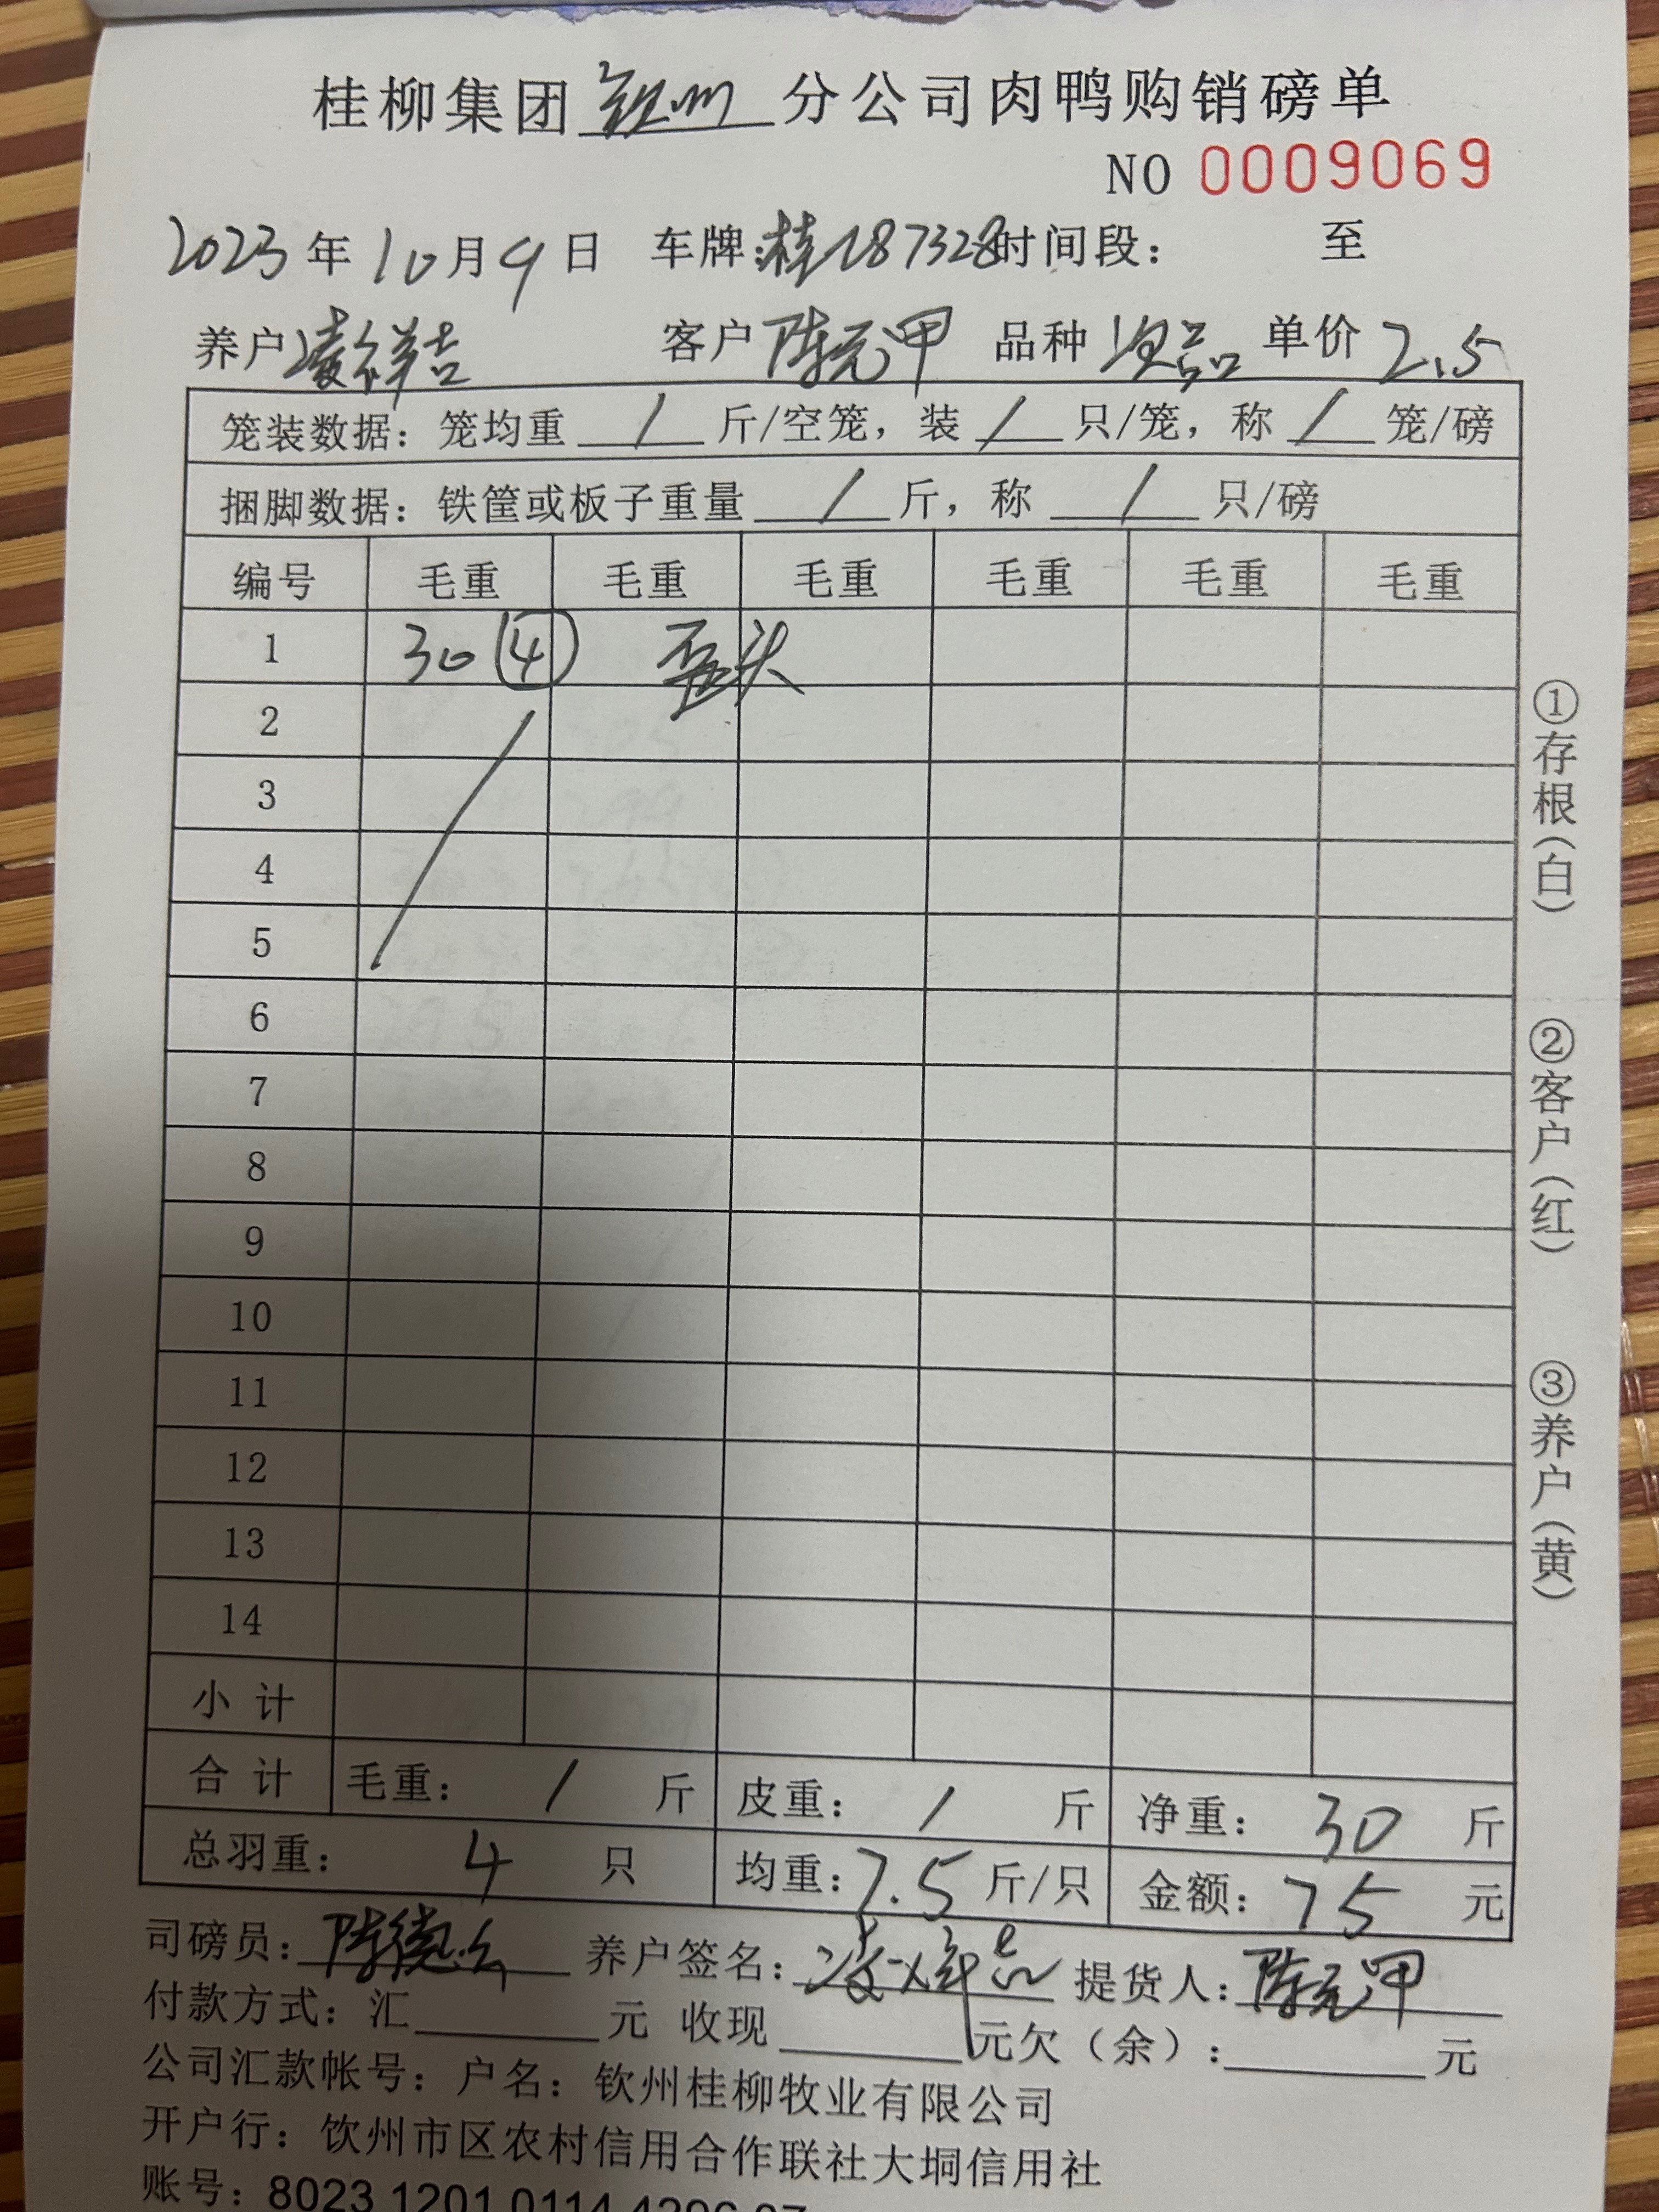 桂柳集团 钦州 分公司肉鸭购销磅单
NO 0009069
2023 年 10 月 9 日 车牌: 桂 87328 时间段: 至
养户 凌祥吉 客户 陈元甲 品种 次品 单价 2.5
笼装数据: 笼均重 / 斤/空笼, 装 / 只/笼, 称 / 笼/磅
捆脚数据: 铁筐或板子重量 / 斤, 称 / 只/磅
编号 毛重 毛重 毛重 毛重 毛重 毛重
1 30 ④ 歪头
2
3
4
5
6
7
8
9
10
11
12
13
14
小计
合计 毛重: / 斤 皮重: / 斤 净重: 30 斤
总羽重: 4 只 均重: 7.5 斤/只 金额: 75 元
①存根(白)
②客户(红)
③养户(黄)
司磅员: 陈德 养户签名: 凌 提货人: 陈元甲
付款方式: 汇 元 收现 元欠(余): 元
公司汇款帐号: 户名: 钦州桂柳牧业有限公司
开户行: 饮州市区农村信用合作联社大垌信用社
账号: 8023 1201 0114